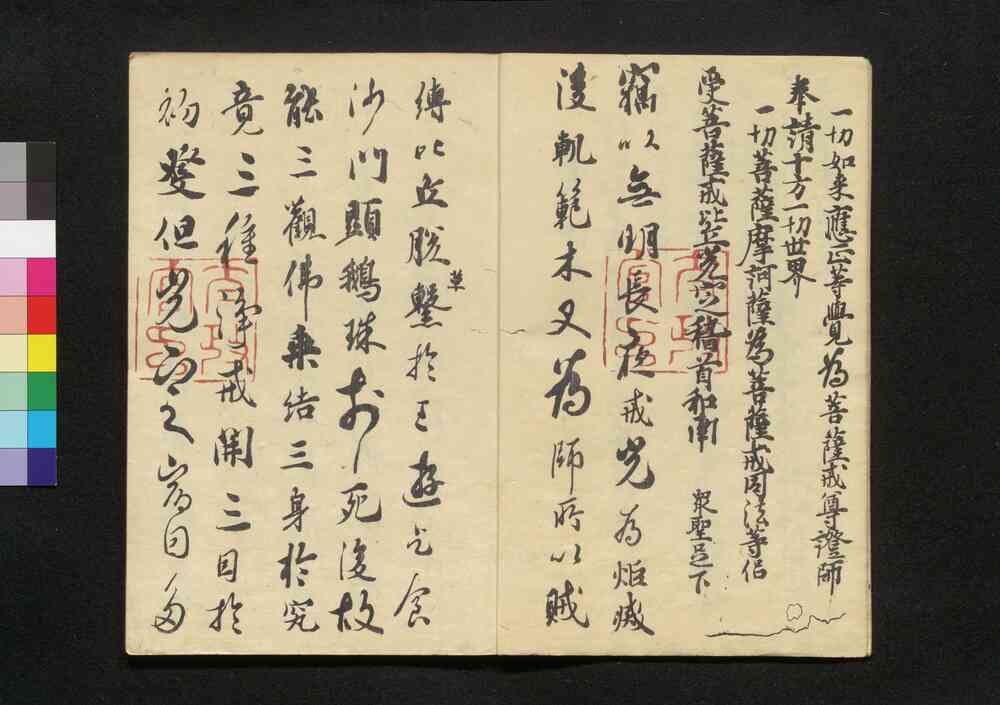 一切如来應正等覺為菩薩戒尊證師
奉請十方一切世界
一切菩薩摩訶薩為菩薩戒同法等侶
受菩薩戒比丘光定稽首和南 衆聖足下
竊以無明長夜戒光為炬滅
後軌範木叉為師所以賊
縛比丘脱草繫於王遊乞食
沙門顯鵝珠於死後故
能三觀佛乗結三身於究
竟三種淨戒開三因於
初發但光定宿因多